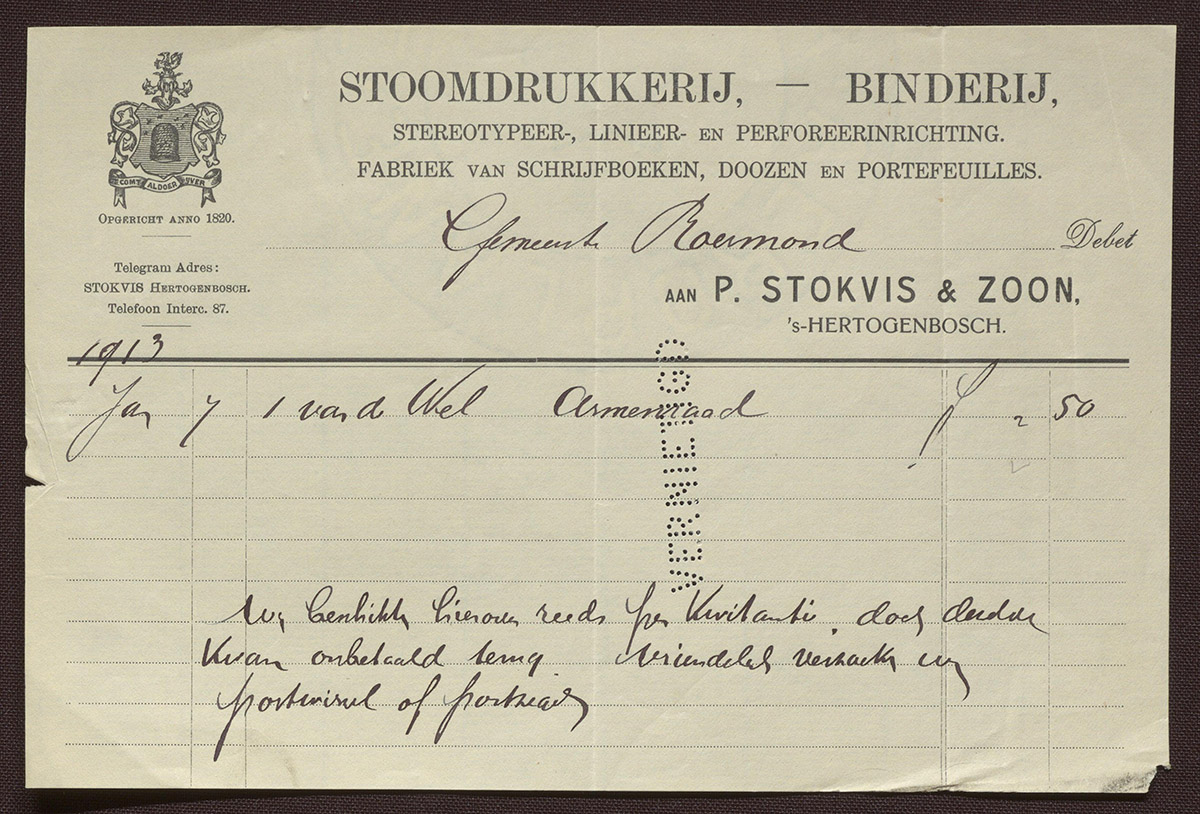 STOOMDRUKKERIJ, — BINDERIJ,
STEREOTYPEER-, LINIEER- EN PERFOREERINRICHTING.
FABRIEK VAN SCHRIJFBOEKEN, DOOZEN EN PORTEFEUILLES.
COMT ALDOER YVER
OPGERICHT ANNO 1820.
Gemeente Roermond Debet
Telegram Adres:
STOKVIS HERTOGENBOSCH.
Telefoon Interc. 87.
AAN P. STOKVIS & ZOON,
's-HERTOGENBOSCH.
1913
Jan 7 1 van de Wel Armenraad f " 50
VERNIETIGD
Wij beschikten hierover reeds per Kwitantie, doch deze
Kwam onbetaald terug. Vriendelijk verzoeke wij
postwissel of postzegels